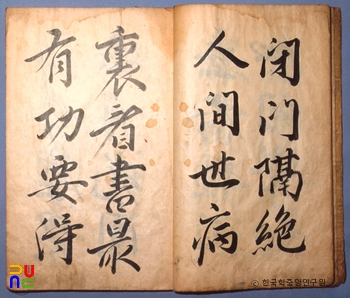 闭门隔絶
人间世病
裏看書最
有功要得
RUNC
ⓒ 한국학중앙연구원